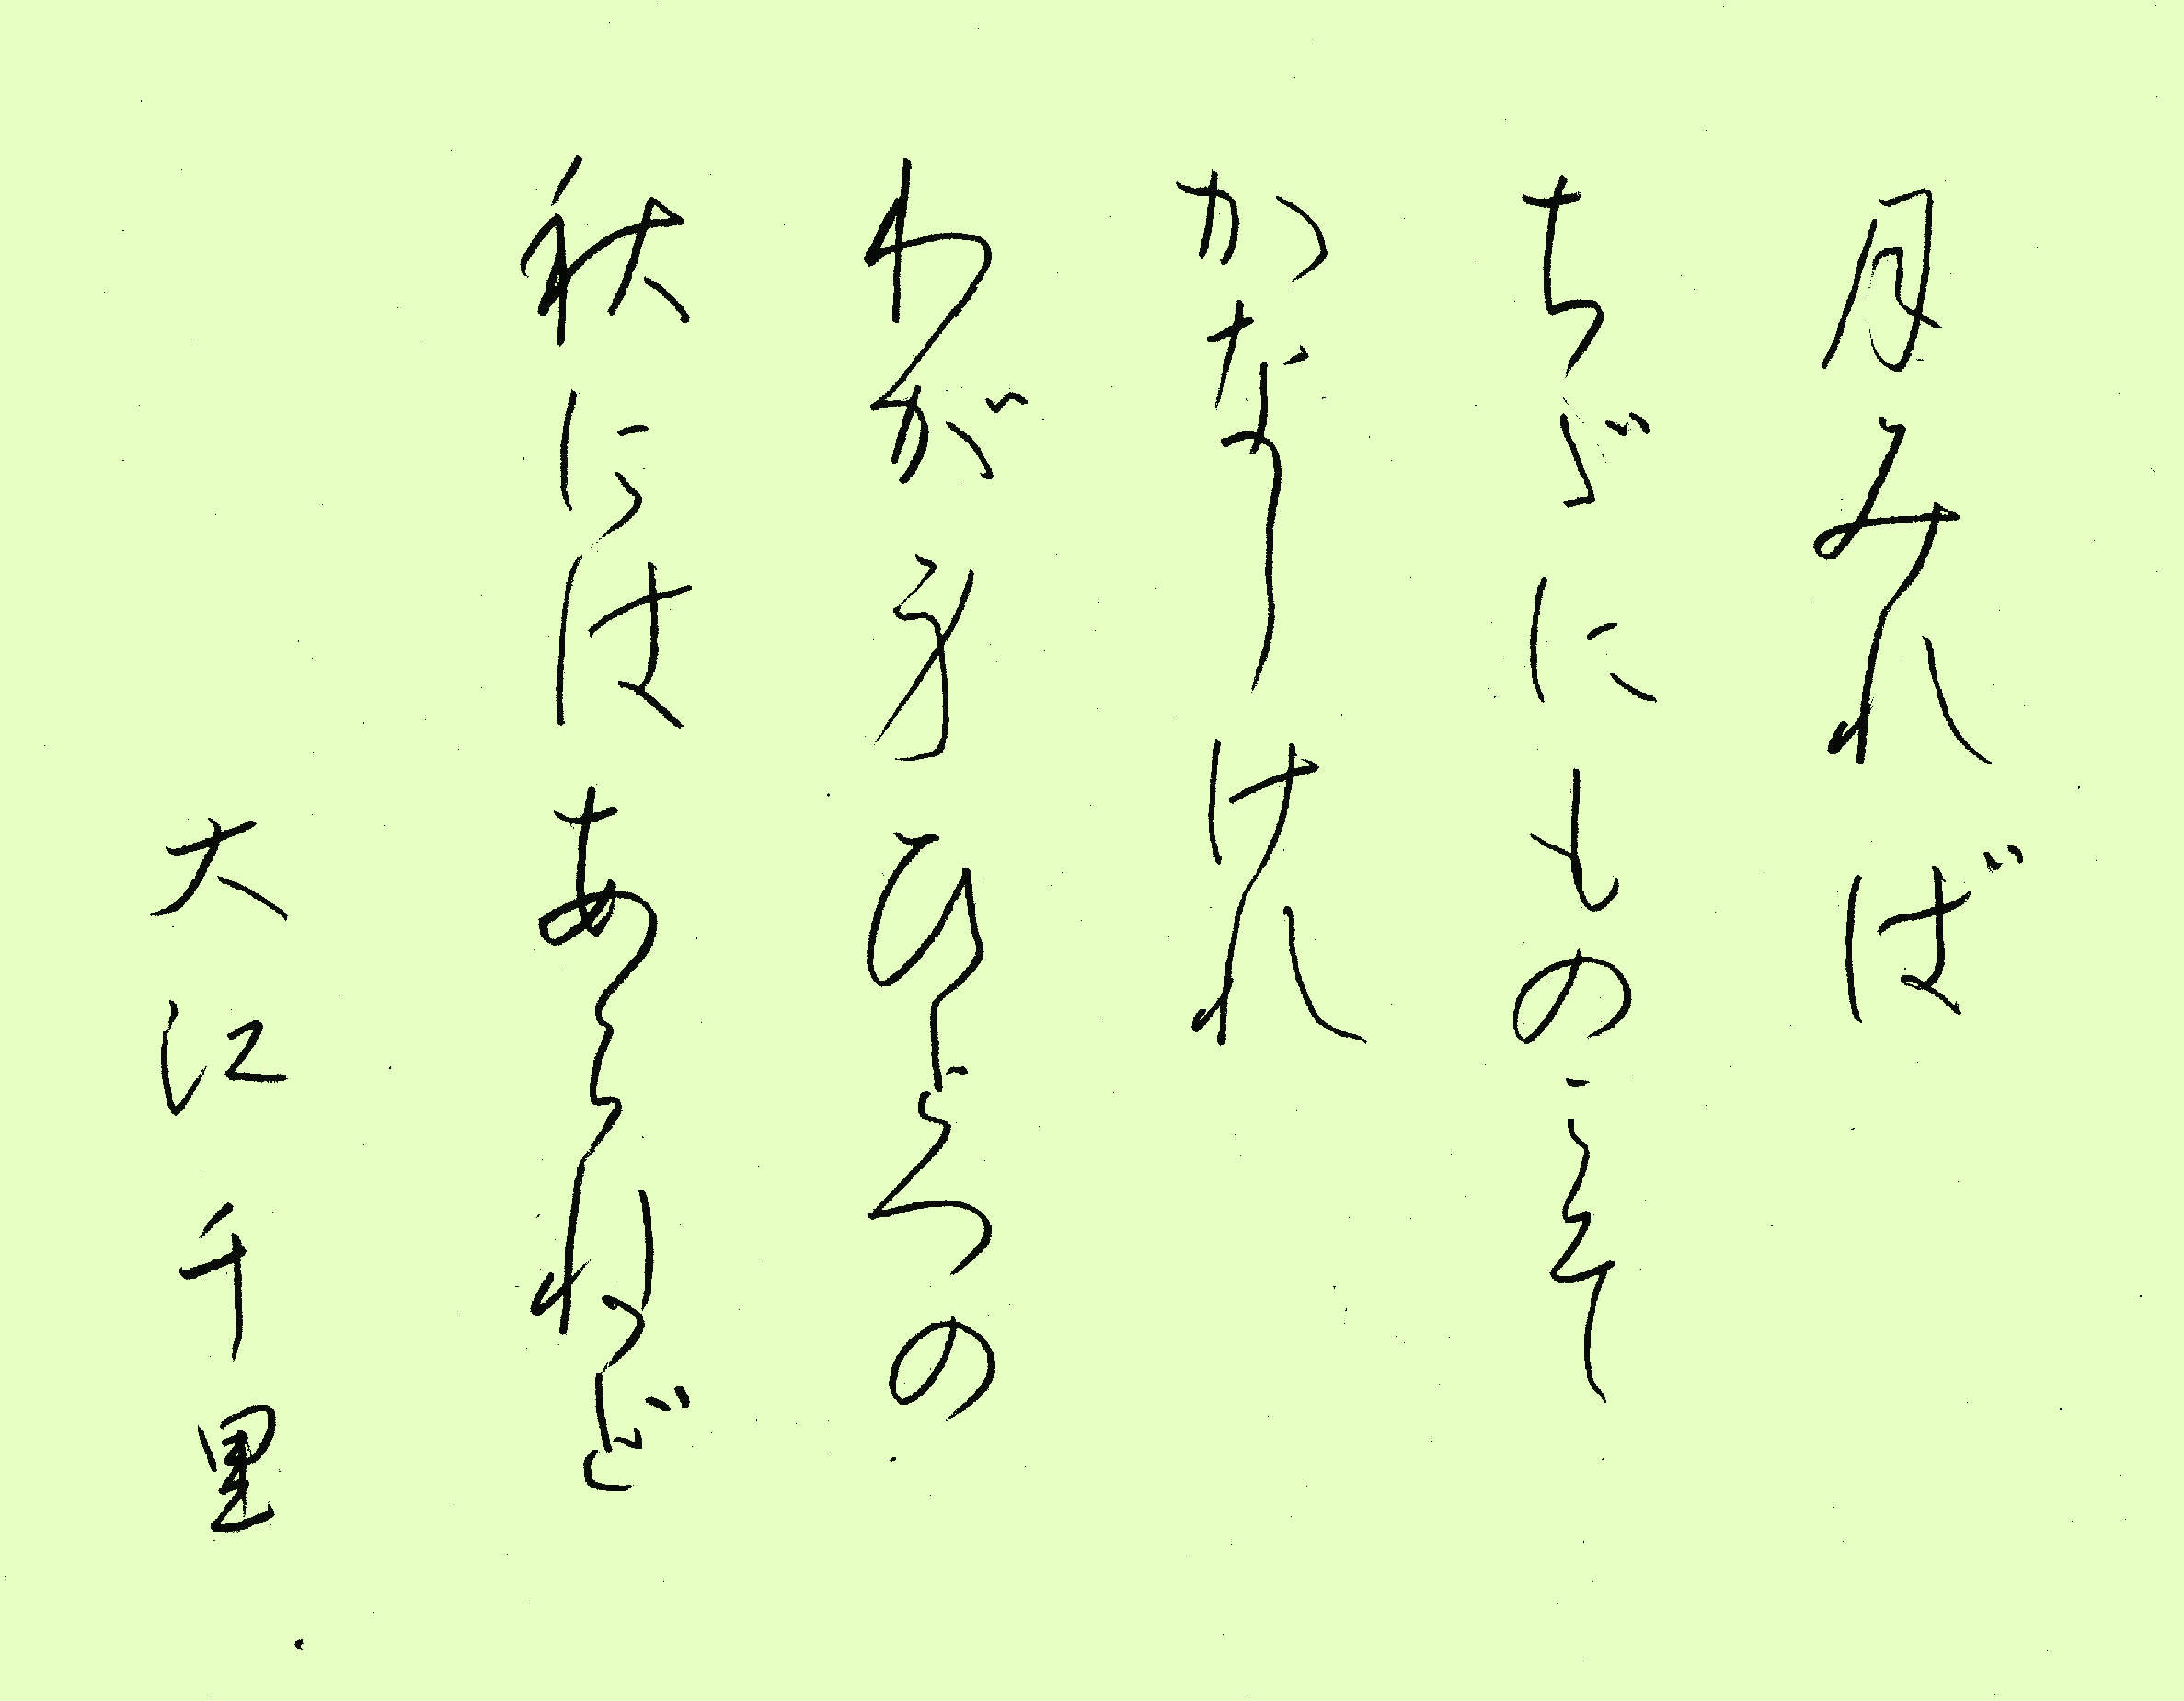 月みれば
ちぢにものこそ
かなしけれ
わが身ひとつの
秋にはあらねど
大江千里